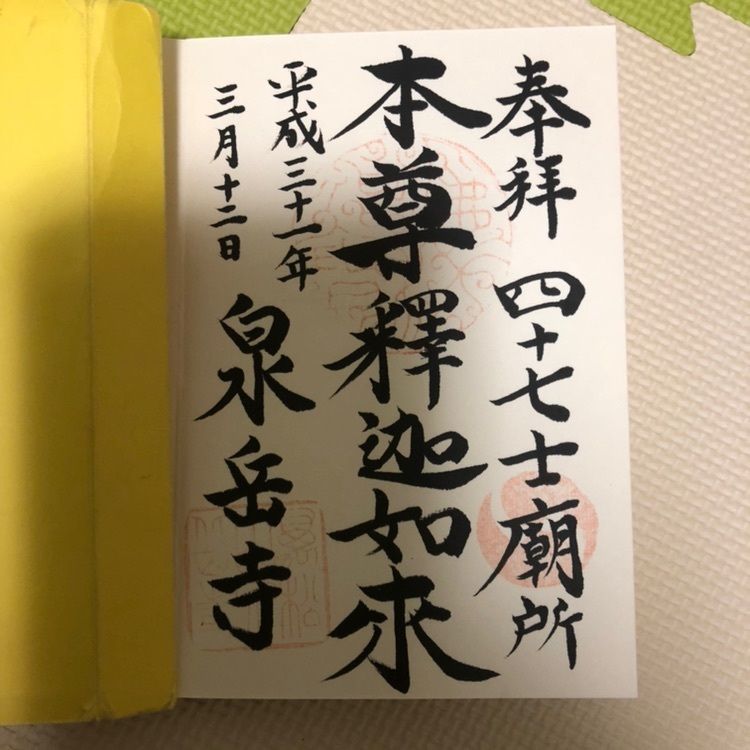 奉拝 四十七士廟所
本尊釋迦如来
平成三十一年
三月十二日
泉岳寺